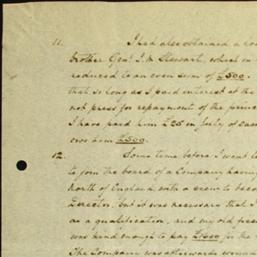 11. I had also obtained a
brother Genl J. M. Stewart, which in
reduced to an even sum of £500.
that so long as I paid interest at the
not press for repayment of the princ
I have paid him £25 in July of
owe him £500.
12. Some time before I went
to join the board of a Company having
North of England with a view to
Director, but it was necessary that I
as a qualification, and my old
was kind enough to pay for the
The Company was afterwards